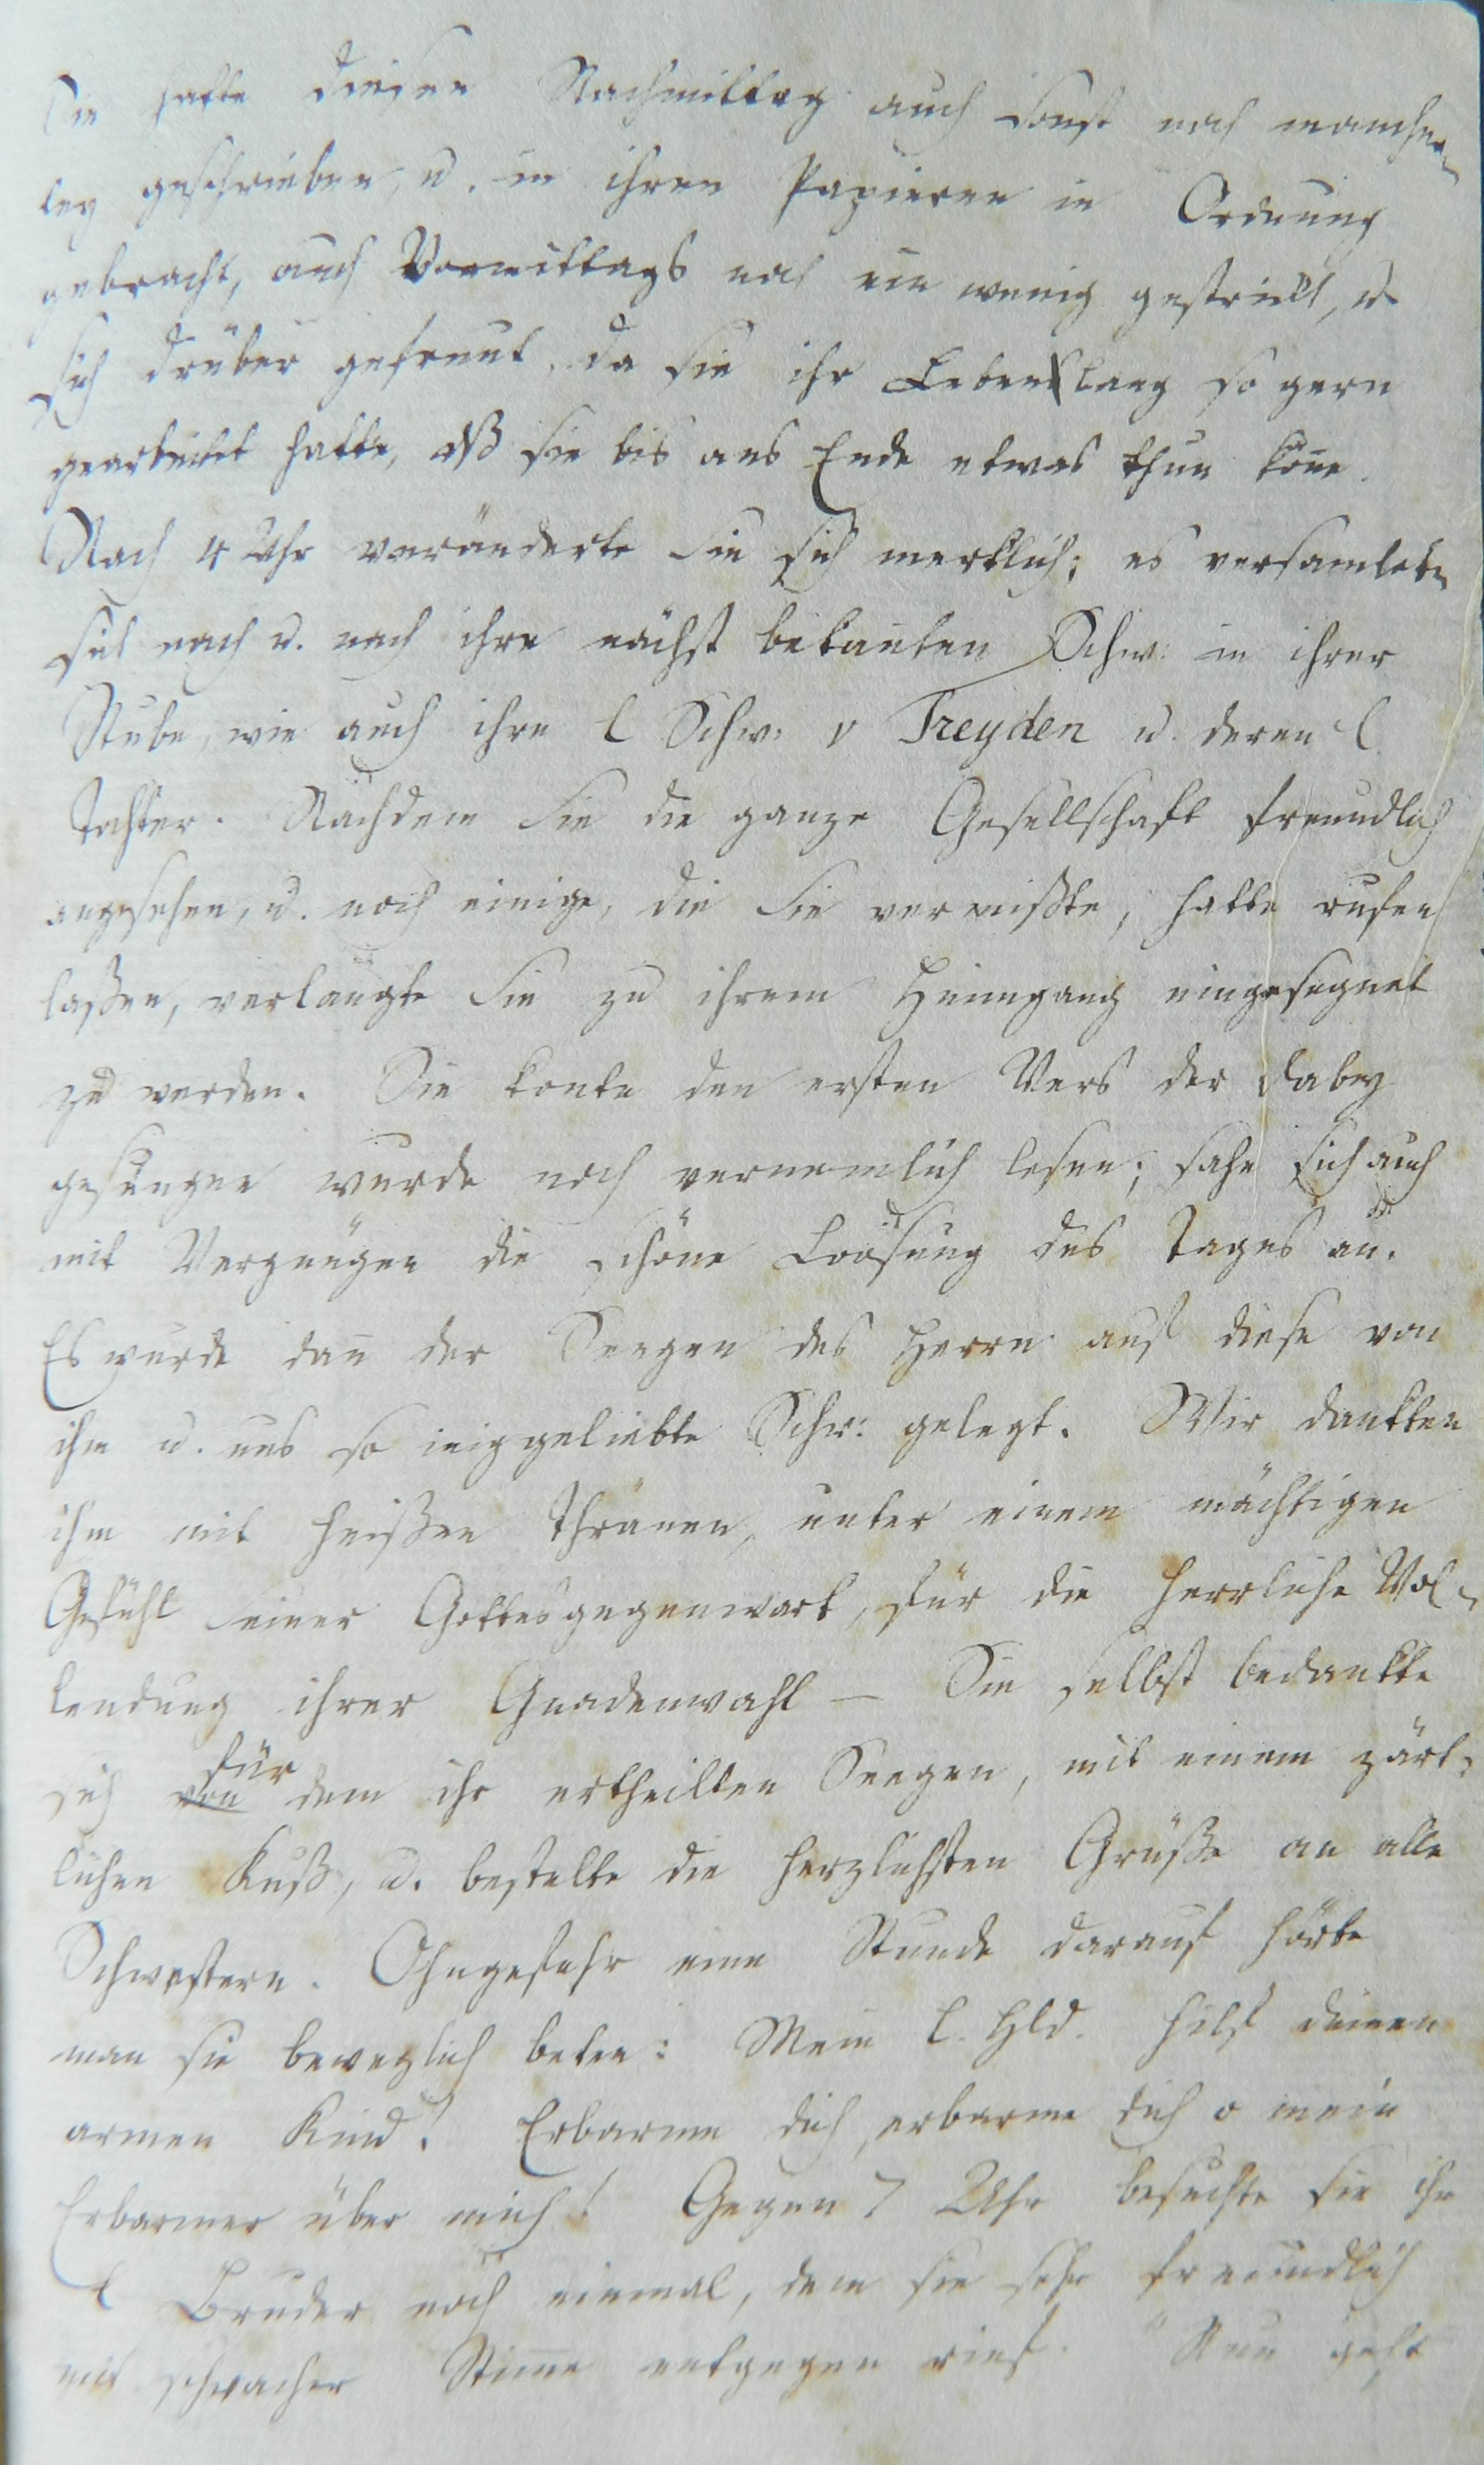 Sie hatte diesen Nachmittag auch sonst noch mancher-
ley geschrieben, u. in ihren Papieren in Ordnung
gebracht, auch Vormittags noch ein wenig gestrickt, u.
sich drüber gefreut, da sie ihr Lebenslang so gern
gearbeitet hatte, dß sie bis ans Ende etwas thun köne.
Nach 4 Uhr veränderte sie sich merklich; es versamleten
sich nach u. nach ihre nächst bekanten Schw: in ihrer
Stube, wie auch ihre l Schw: v Treyden u. deren l.
Tochter. Nachdem sie die ganze Gesellschaft freundlich
angesehen, u. noch einige, die sie vermißte, hatte rufen
laßen, verlangte sie zu ihrem Heimgang eingesegnet
zu werden. Sie konte den ersten Vers der dabey
gesungen wurde noch vernemlich lesen; sahe sich auch
mit Vergnügen die schöne Loosung des Tages an.
Es wurde dan̅ der Seegen des Herrn auf diese von
ihm u. uns so in̅iggeliebte Schw: gelegt. Wir dankten
ihm mit heißen Thränen, unter einem mächtigen
Gefühl seiner Gottesgegenwart, für die herrliche Vol-
lendung ihrer Gnadenwahl — Sie selbst bedankte
sich von für dem ihr ertheilten Seegen, mit einem zärt-
lichen Kuß, u. bestelte die herzlichsten Grüße an alle
Schwestern. Ohngefehr eine Stunde darauf hörte
man sie beweglich beten: Mein l. Hld. hilf deinem
armen Kind! Erbarme dich, erbarme dich o mein
Erbarmer über mich! Gegen 7 Uhr besuchte sie ihr
l Bruder noch einmal, dem sie sehr freundlich
mit schwacher Stim̅e entgegen rief. "Nun geht